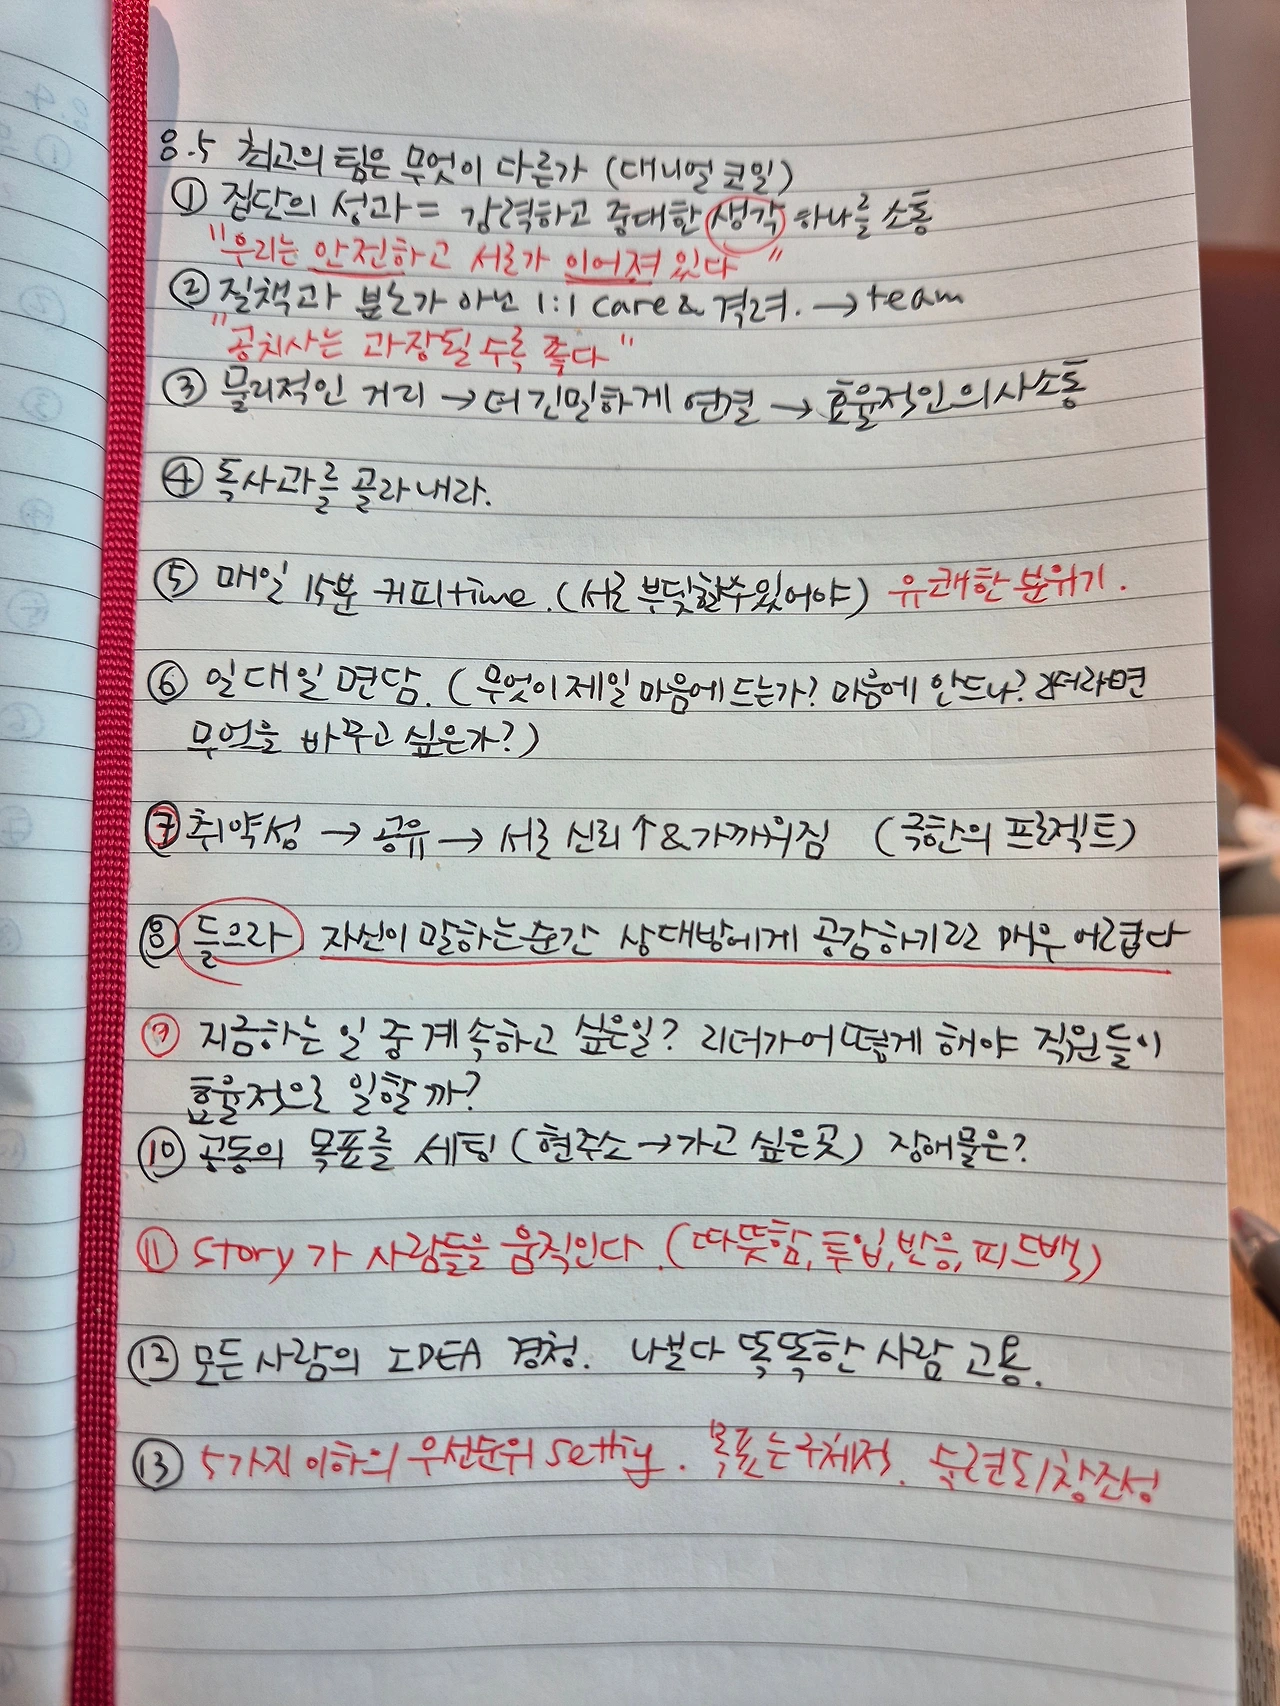 8.5 최고의 팀은 무엇이 다른가 (대니얼 코일)
① 집단의 성과 = 강력하고 중대한 생각 하나를 소통
"우리는 안전하고 서로가 이어져 있다"
② 질책과 분노가 아닌 1:1 care & 격려. → team
"공치사는 과장될수록 좋다"
③ 물리적인 거리 → 더 긴밀하게 연결 → 효율적인 의사소통
④ 독사과를 골라내라.
⑤ 매일 15분 커피 time. (서로 부딪힐수있어야) 유쾌한 분위기.
⑥ 일대일 면담. (무엇이 제일 마음에 드는가? 마음에 안드나? 리더라면
무엇을 바꾸고 싶은가?)
⑦ 취약성 → 공유 → 서로 신뢰↑ & 가까워짐 (극한의 프로젝트)
⑧ 들으라 자신이 말하는 순간 상대방에게 공감하기란 매우 어렵다
⑨ 지금하는 일 중 계속하고 싶은일? 리더가 어떻게 해야 직원들이
효율적으로 일할까?
⑩ 공동의 목표를 세팅 (현주소 → 가고 싶은곳) 장애물은?
⑪ story가 사람들을 움직인다. (따뜻함, 투입, 반응, 피드백)
⑫ 모든 사람의 IDEA 경청. 나보다 똑똑한 사람 고용.
⑬ 5가지 이하의 우선순위 setting. 목표는 구체적.